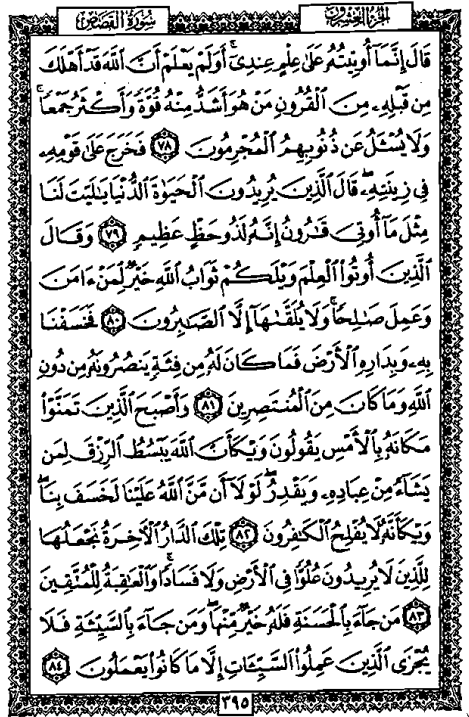 سُورَةُ القَصَصِ
الجُزْءُ العِشْرُونَ
قَالَ إِنَّمَآ أُوتِيتُهُۥ عَلَىٰ عِلۡمٍ عِندِيٓۚ أَوَلَمۡ يَعۡلَمۡ أَنَّ ٱللَّهَ قَدۡ أَهۡلَكَ
مِن قَبۡلِهِۦ مِنَ ٱلۡقُرُونِ مَنۡ هُوَ أَشَدُّ مِنۡهُ قُوَّةٗ وَأَكۡثَرُ جَمۡعٗاۚ
وَلَا يُسۡـَٔلُ عَن ذُنُوبِهِمُ ٱلۡمُجۡرِمُونَ ٧٨ فَخَرَجَ عَلَىٰ قَوۡمِهِۦ
فِي زِينَتِهِۦۖ قَالَ ٱلَّذِينَ يُرِيدُونَ ٱلۡحَيَوٰةَ ٱلدُّنۡيَا يَٰلَيۡتَ لَنَا
مِثۡلَ مَآ أُوتِيَ قَٰرُونُ إِنَّهُۥ لَذُو حَظٍّ عَظِيمٖ ٧٩ وَقَالَ
ٱلَّذِينَ أُوتُواْ ٱلۡعِلۡمَ وَيۡلَكُمۡ ثَوَابُ ٱللَّهِ خَيۡرٞ لِّمَنۡ ءَامَنَ
وَعَمِلَ صَٰلِحٗاۚ وَلَا يُلَقَّىٰهَآ إِلَّا ٱلصَّٰبِرُونَ ٨٠ فَخَسَفۡنَا
بِهِۦ وَبِدَارِهِ ٱلۡأَرۡضَ فَمَا كَانَ لَهُۥ مِن فِئَةٖ يَنصُرُونَهُۥ مِن دُونِ
ٱللَّهِ وَمَا كَانَ مِنَ ٱلۡمُنتَصِرِينَ ٨١ وَأَصۡبَحَ ٱلَّذِينَ تَمَنَّوۡاْ
مَكَانَهُۥ بِٱلۡأَمۡسِ يَقُولُونَ وَيۡكَأَنَّ ٱللَّهَ يَبۡسُطُ ٱلرِّزۡقَ لِمَن
يَشَآءُ مِنۡ عِبَادِهِۦ وَيَقۡدِرُۖ لَوۡلَآ أَن مَّنَّ ٱللَّهُ عَلَيۡنَا لَخَسَفَ بِنَاۖ
وَيۡكَأَنَّهُۥ لَا يُفۡلِحُ ٱلۡكَٰفِرُونَ ٨٢ تِلۡكَ ٱلدَّارُ ٱلۡأٓخِرَةُ نَجۡعَلُهَا
لِلَّذِينَ لَا يُرِيدُونَ عُلُوّٗا فِي ٱلۡأَرۡضِ وَلَا فَسَادٗاۚ وَٱلۡعَٰقِبَةُ لِلۡمُتَّقِينَ
٨٣ مَن جَآءَ بِٱلۡحَسَنَةِ فَلَهُۥ خَيۡرٞ مِّنۡهَاۖ وَمَن جَآءَ بِٱلسَّيِّئَةِ فَلَا
يُجۡزَى ٱلَّذِينَ عَمِلُواْ ٱلسَّيِّـَٔاتِ إِلَّا مَا كَانُواْ يَعۡمَلُونَ ٨٤
٣٩٥